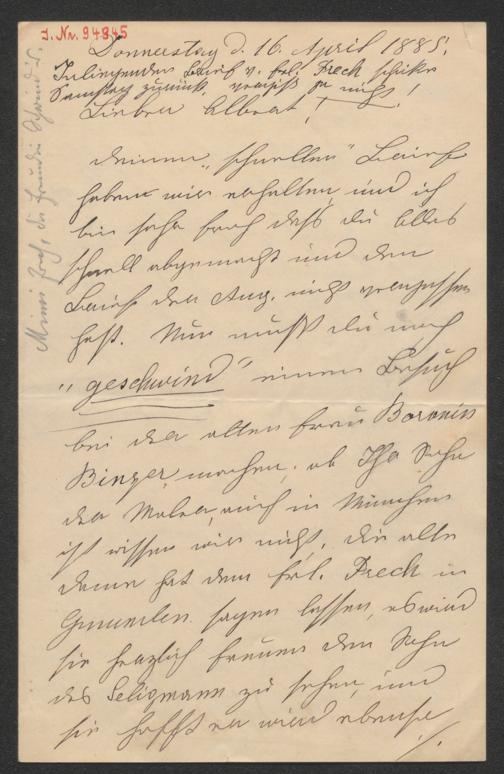 J. Nr. 94845
Donnerstag d. 16. April 1885.
Inliegenden Brief v. Frl. Frech schicke
Samstag zurück, vergiß ja nicht!
Lieber Albert!
Deinen "schnellen" Brief
haben wir erhalten, und ich
bin sehr froh daß du Alles
schnell abgemacht und den
Brief der Aug. nicht vergessen
hast. Nun mußt du noch
"geschwind" einen Besuch
bei der alten Frau Baronin
Binzer machen, ob Ihr Sohn
der Maler, auch in München
ist wissen wir nicht, die alte
Dame hat dem Frl. Frech in
Gmunden sagen lassen, es wird
sie herzlich freuen den Sohn
des Seligmann zu sehen, und
sie hofft er wird ebenso
./.
Mimi Frech, die Freundin